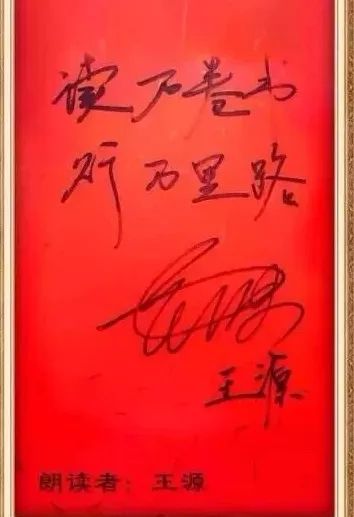 读万卷书
行万里路
王源
朗读者：王源